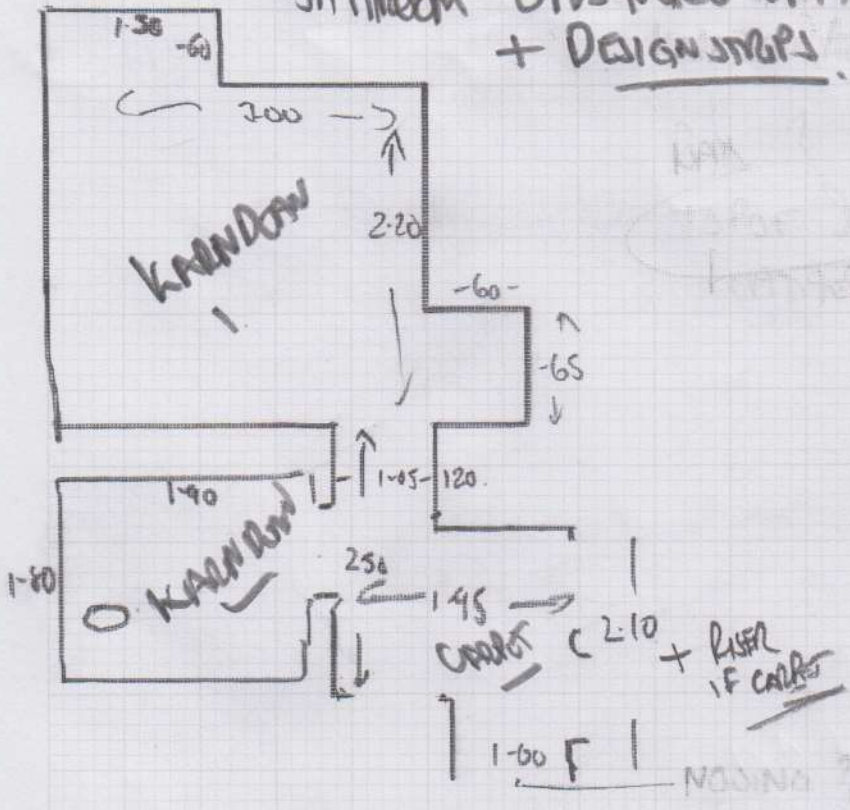 + DESIGN STRIPS.
1.50
-60
300
2.20
KARNDEAN
-60-
-65
1-05- 120.
1.90
KARNDEAN
1-80
250
1.45
CARPET
2.10
+ RISER
IF CARPET
1-00